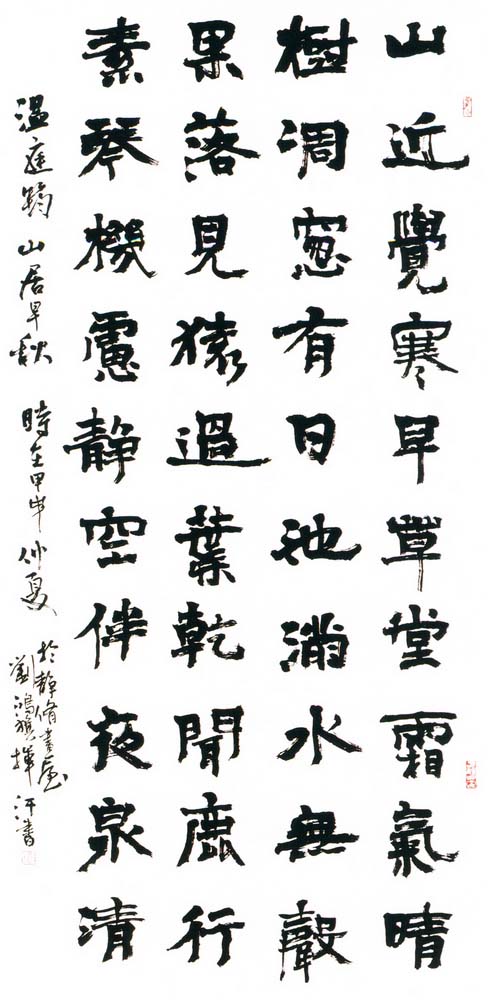 山近覺寒早草堂霜氣晴
樹凋窓有日池滿水無聲
果落見猿過葉乾聞鹿行
素琴機慮靜空伴夜泉清
溫庭筠山居早秋 時在甲申仲夏
於靜脩書屋
劉鴻旗揮汗書